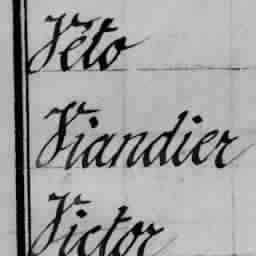 Véto
Viandier
Victor